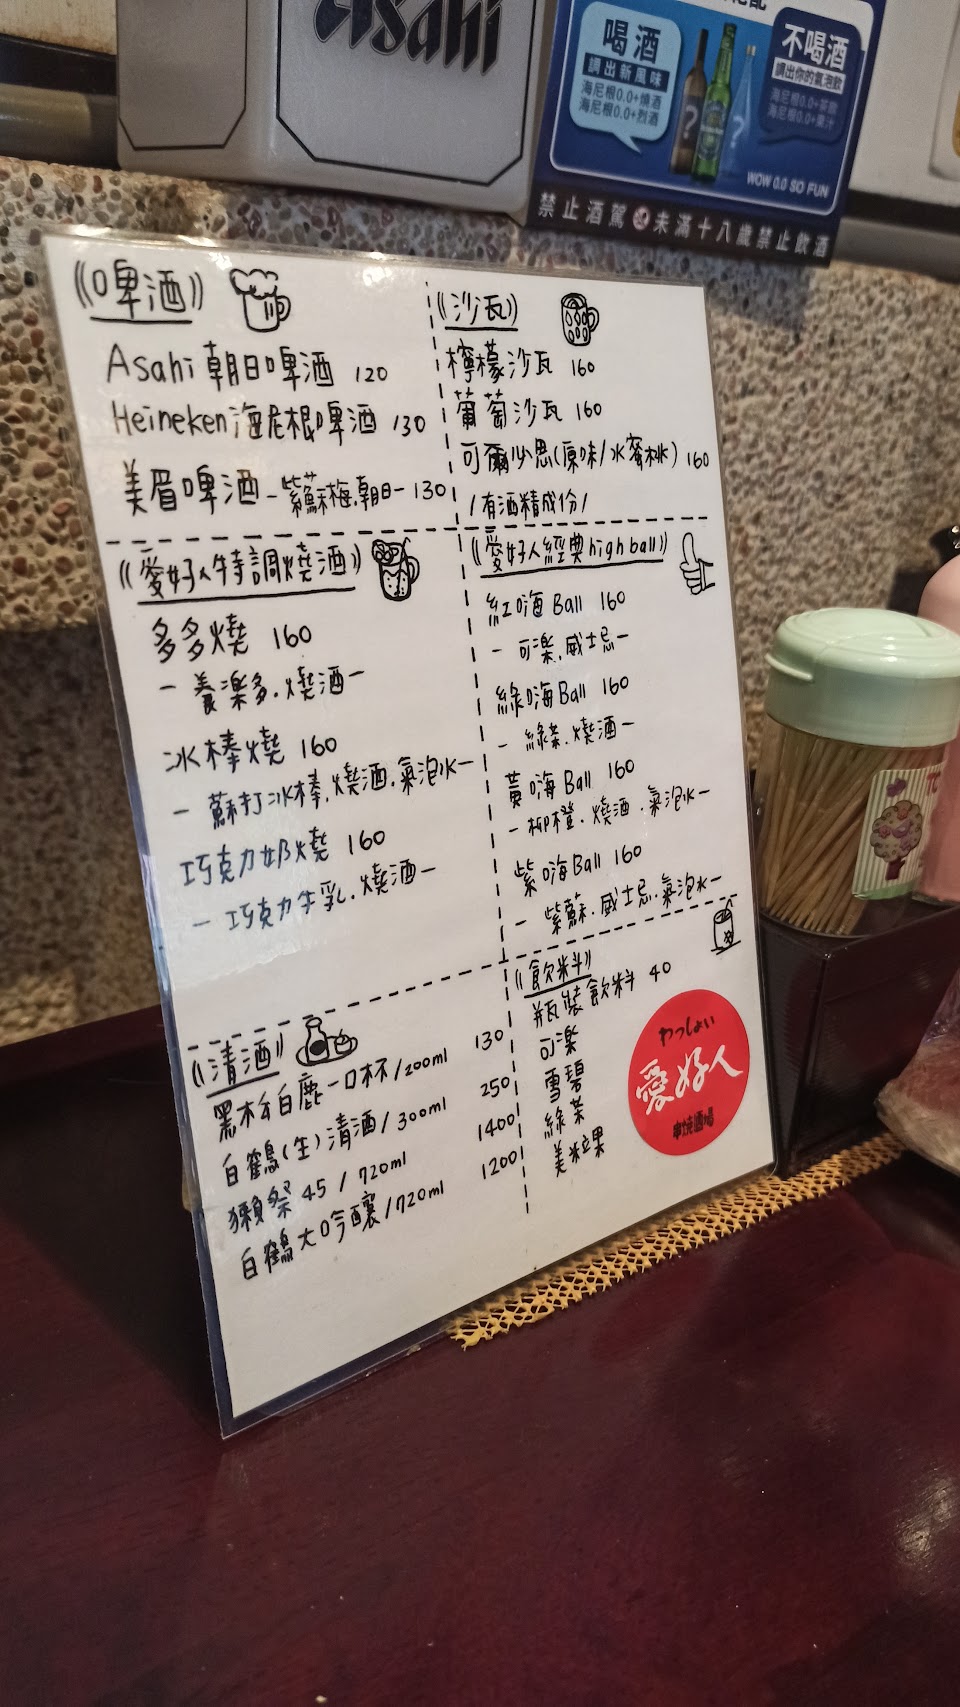 Asahi
喝酒
調出新風味
海尼根0.0+燒酒
海尼根0.0+烈酒
不喝酒
調出你的氣泡飲
海尼根0.0+茶飲
海尼根0.0+果汁
WOW 0.0 SO FUN
禁止酒駕 未滿十八歲禁止飲酒
《啤酒》
Asahi 朝日啤酒 120
Heineken 海尼根啤酒 130
美眉啤酒 -紫蘇梅.朝日- 130
《沙瓦》
檸檬沙瓦 160
葡萄沙瓦 160
可爾必思(原味/水蜜桃) 160
/有酒精成份/
《愛好人特調燒酒》
多多燒 160
- 養楽多.燒酒-
冰棒燒 160
- 蘇打冰棒.燒酒.氣泡水-
巧克力奶燒 160
- 巧克力牛乳.燒酒-
《愛好人經典highball》
紅嗨Ball 160
- 可楽.威士忌-
綠嗨Ball 160
- 綠茶.燒酒-
黃嗨Ball 160
- 柳橙.燒酒.氣泡水-
紫嗨Ball 160
- 紫蘇.威士忌.氣泡水-
《清酒》
黑松白鹿一口杯/200ml 130
白鶴(生)清酒/300ml 250
獺祭45/720ml 1400
白鶴大吟釀/720ml 1200
《飲料》
瓶裝飲料 40
可楽
雪碧
綠茶
美粒果
わっしょい
愛好人
串燒酒場